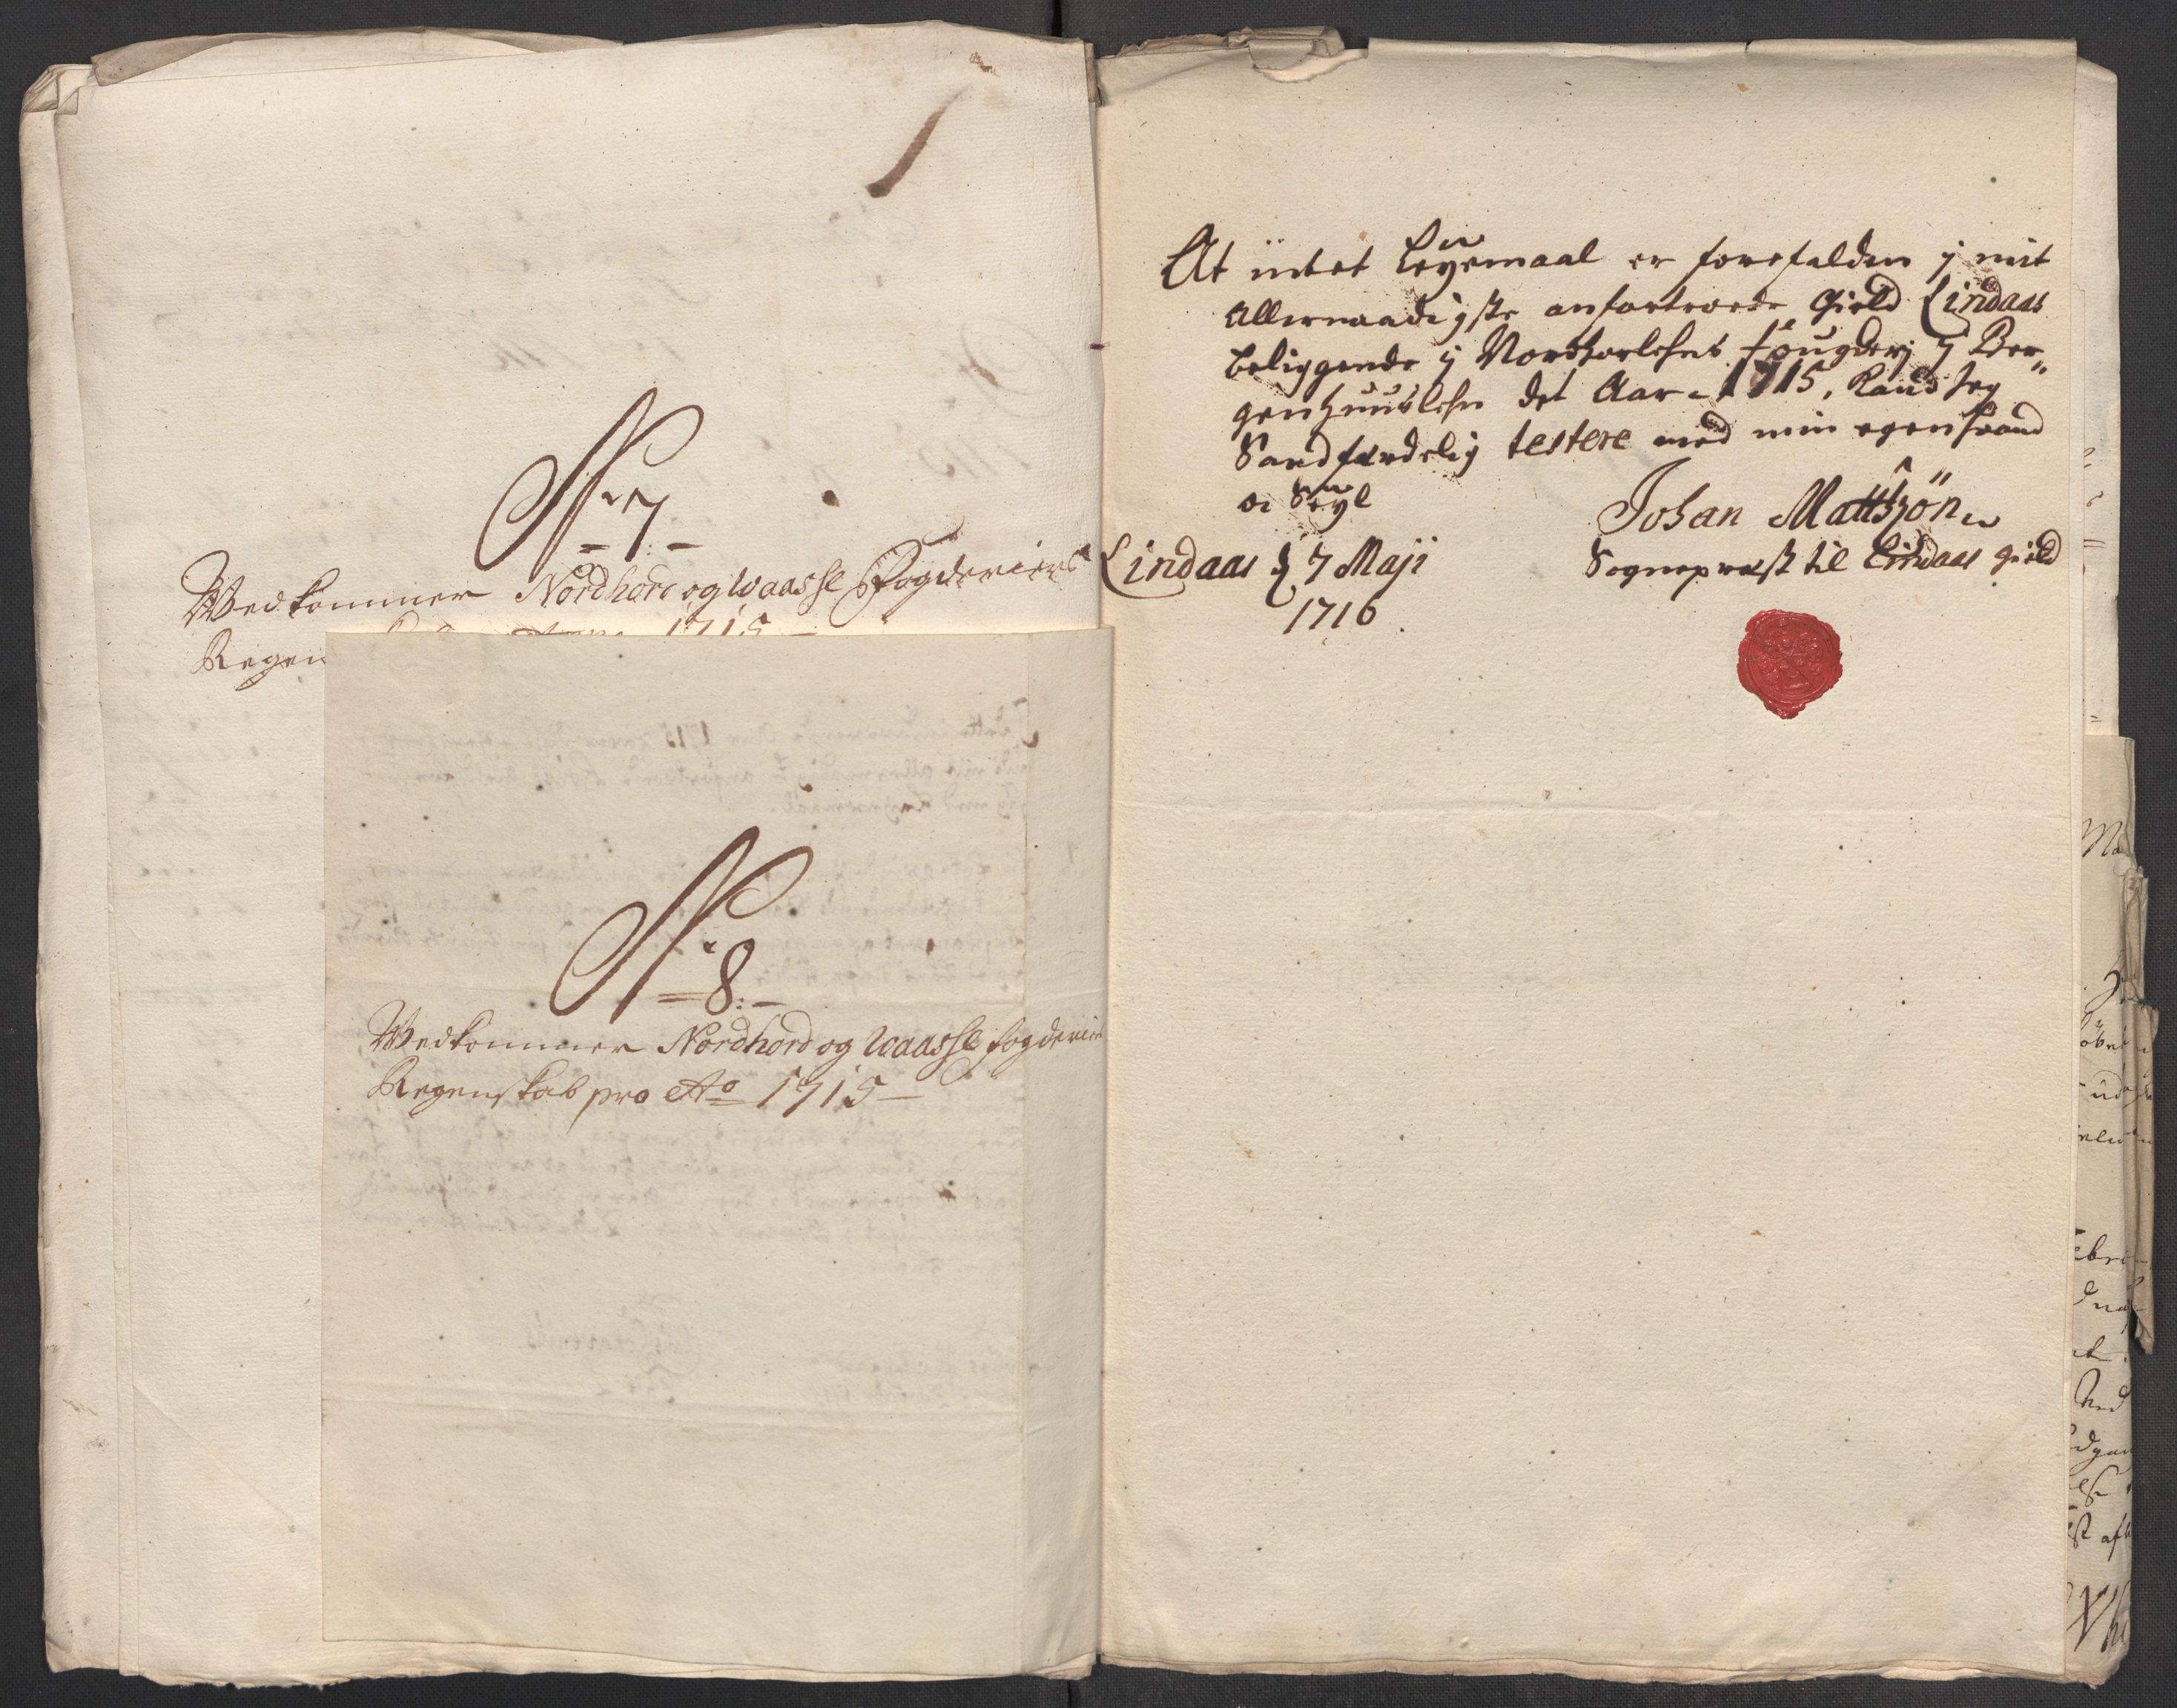 No 7
Wedkommer Nordhord og Waasse Fogderiers
Regen
1715
No 8:
Wedkommer Nordhord og Waasse fogderier
Regenskab pro Ao 1715
At intet Leyermaal er forefalden j mit
Allernaadigste anfortroede Gield Lindaas
beliggende j Nordhorlehns fougderj j Ber„
genhuuslehn det Aar 1715, Kand Jeg
Sandfærdelig testere med min egen haand
oc Seyl
Johan Mattsjön
Lindaas d 7 Maji
1716
Sognepræst til Lindaas gield